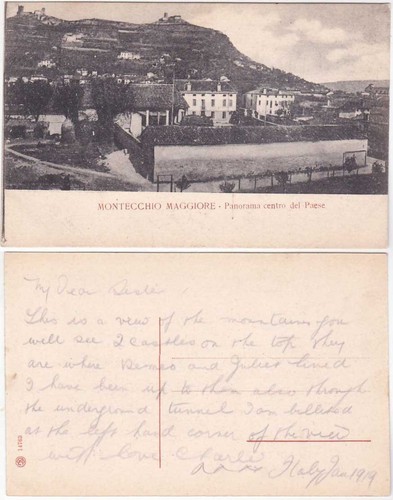 MONTECCHIO MAGGIORE - Panorama centro del Paese
My Dear
This is a view of the mountains you
will see 2 castles on the top they
are where Romeo and Juliet lived
I have been up to them also through
the underground tunnel I am billited
at the left hand corner of the view
with love Charlie
Italy Jan 1919